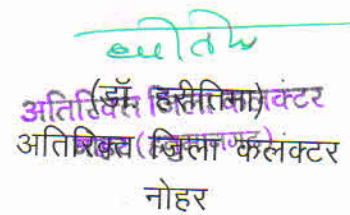 (डॉ. हरीतिमा)
अतिरिक्त जिला कलक्टर
अतिरिक्त जिला कलक्टर
नोहर